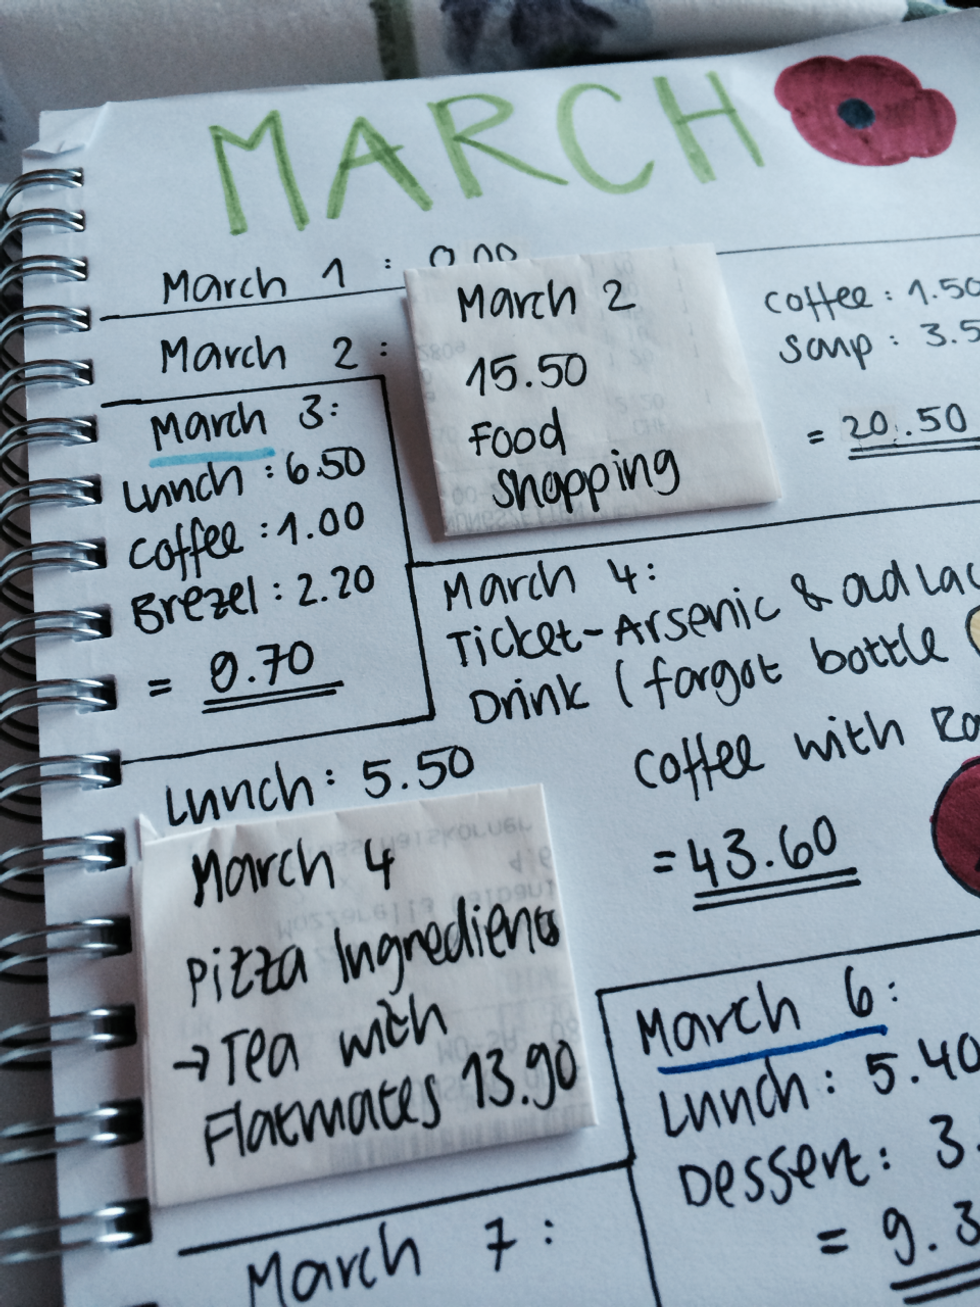 MARCH
March 1 : 0.00
March 2 :
March 2
15.50
Food
Shopping
Coffee : 1.50
Soup : 3.5
= 20.50
March 3:
Lunch : 6.50
Coffee : 1.00
Brezel : 2.20
= 9.70
March 4:
Ticket-Arsenic & ad Lac
Drink (forgot bottle
Coffee with Ro
= 43.60
Lunch : 5.50
March 4
Pizza Ingredients
→ Tea with
Flatmates 13.90
March 6 :
Lunch : 5.40
Dessert : 3.
= 9.3
March 7 :